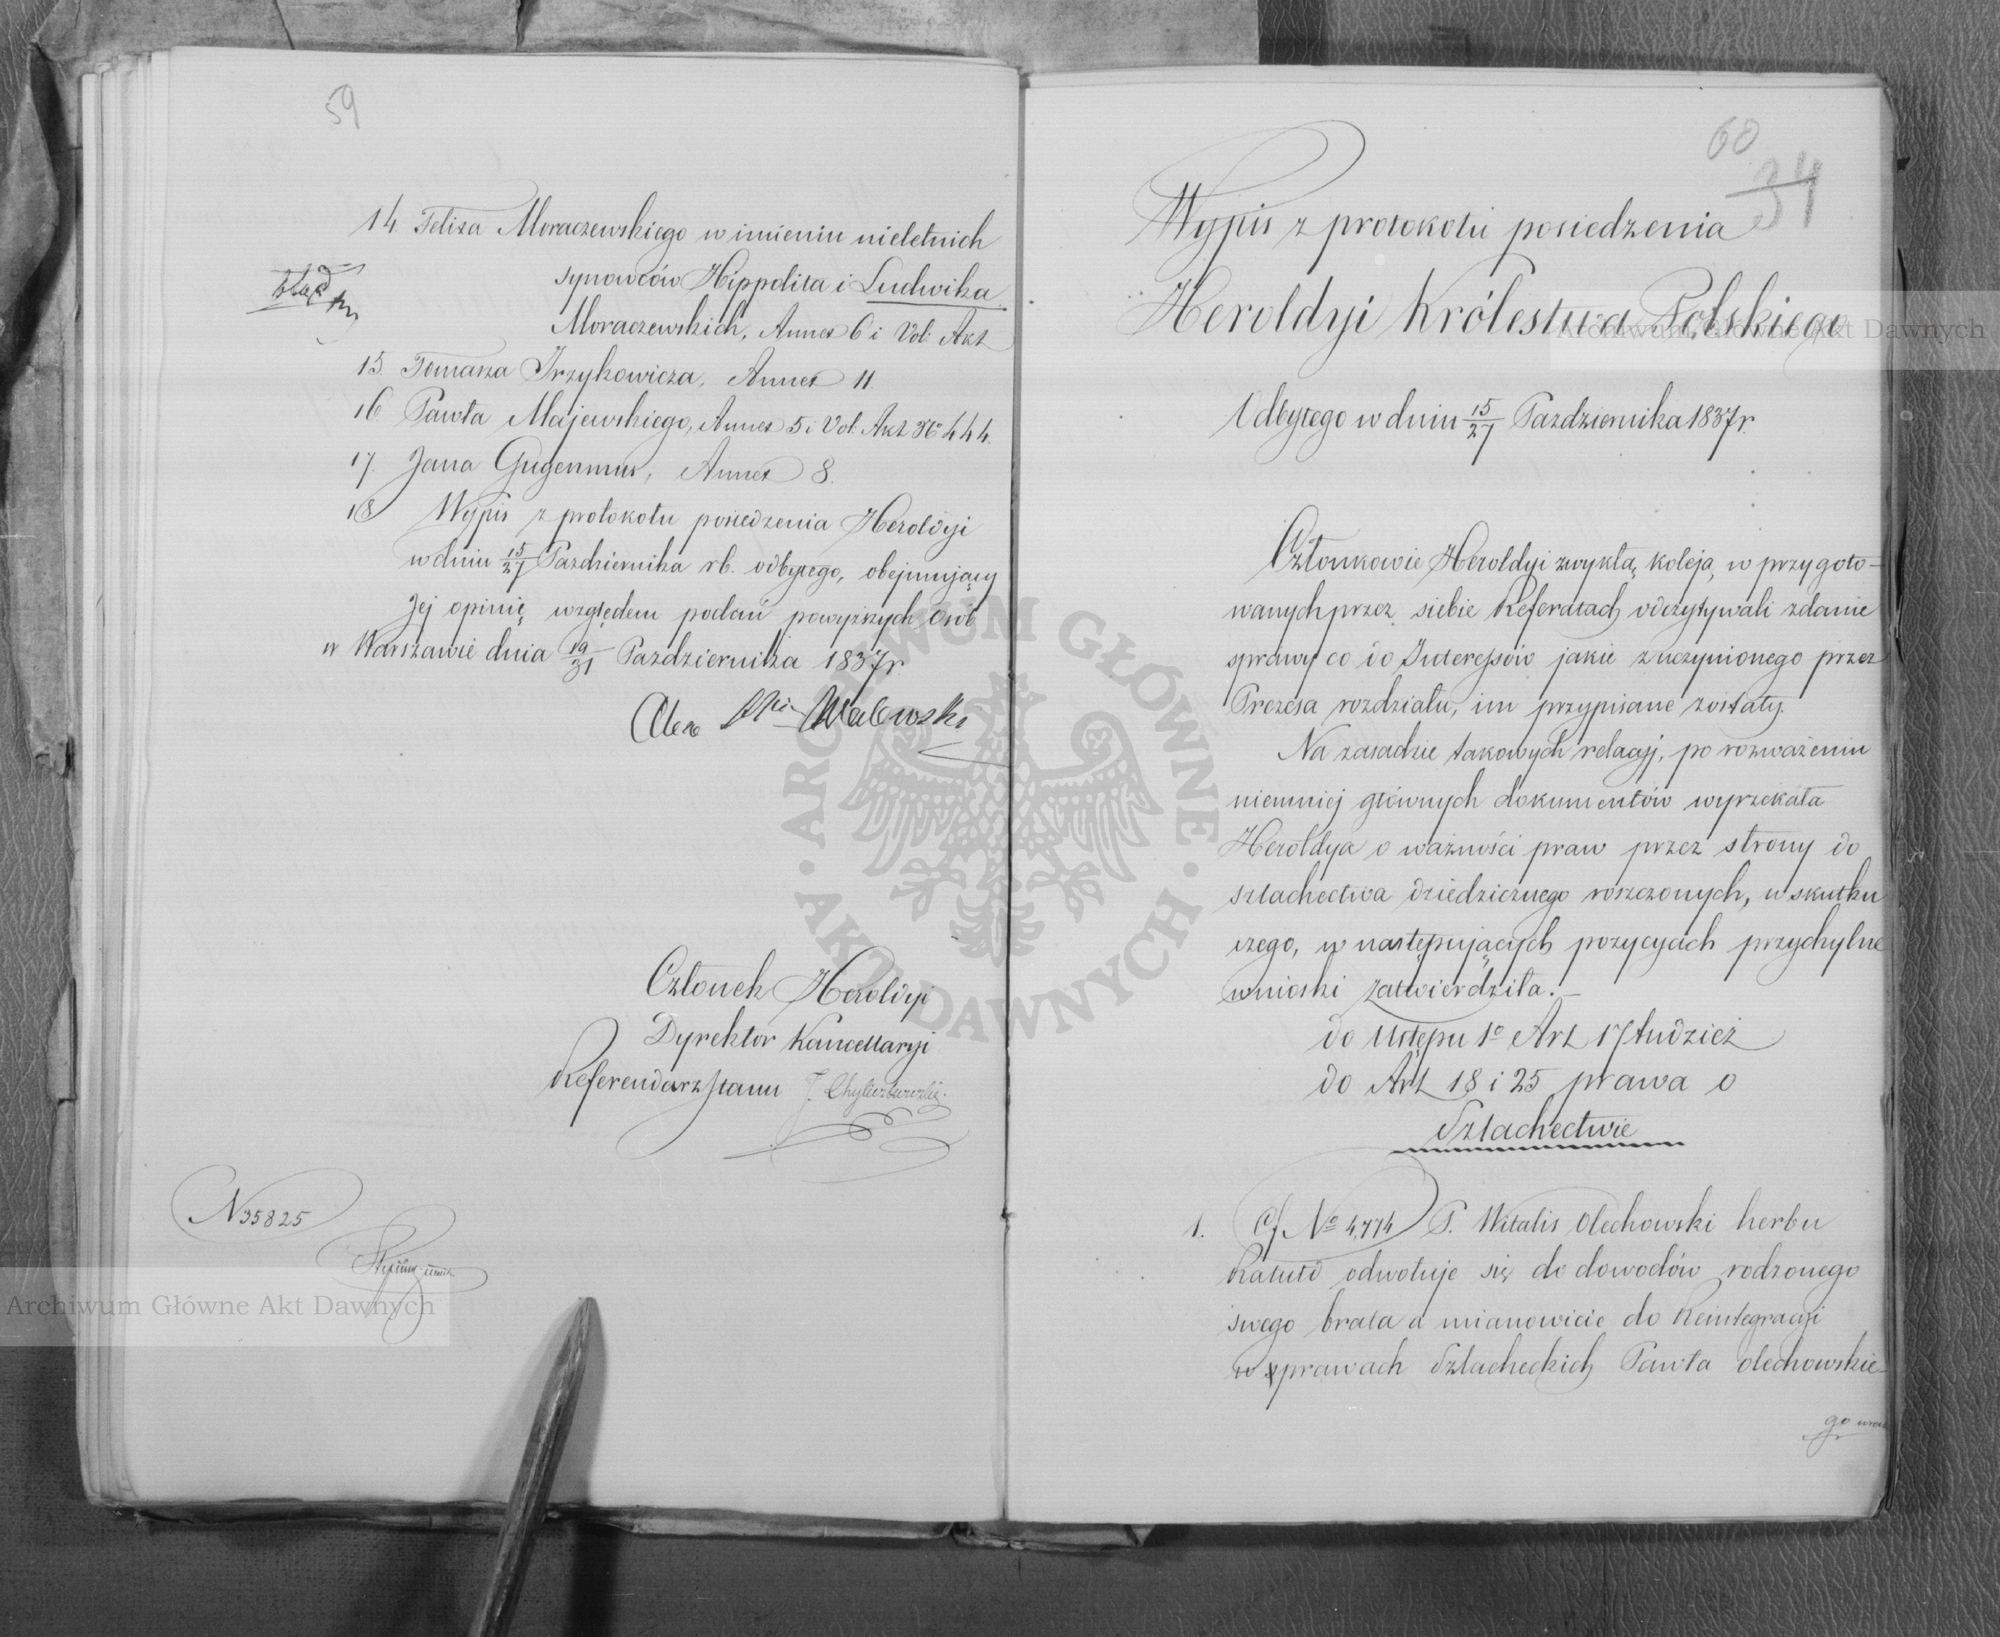 59
14. Felixa Moraczewskiego w imieniu nieletnich
synowców Hippolita i Ludwika
Moraczewskich, Annex 6 i Vol: Akt
15. Tomasza Irzykowicza, Annex 11.
16. Pawła Majewskiego, Annex 5 i Vol: Akt No 444.
17. Jana Gugenmus, Annex 8.
18 Wypis z protokołu posiedzenia Heroldyi
w dniu 15/27 Pazdziernika rb. odbytego, obejmujący
Jej opinię względem podań powyższych Osób
w Warszawie dnia 19/31 Pazdziernika 1837 r
Alex Walewski
Członek Heroldyi
Dyrektor Kancellaryi
Referendarz Stanu
N 35825
60
34
Wypis z protokołu posiedzenia
Heroldyi Królestwa Polskiego
Odbytego w dniu 15/27 Pazdziernika 1837 r.
Członkowie Heroldyi zwykłą koleją, w przygoto-
wanych przez siebie Referatach odczytywali zdanie
sprawy co do Interessów jakie z uczynionego przez
Prezesa rozdziału, im przypisane zostały.
Na zasadzie takowych relacyj, po rozważeniu
niemniej głównych dokumentów wyrzekała
Heroldya o ważności praw przez strony do
szlachectwa dziedzicznego roszczonych, w skutku
czego, w następujących pozycyach przychylne
wnioski zatwierdziła.—
do Ustępu 1o Art 17 tudzież
do Art 18 i 25 prawa o
Szlachectwie
1. Cf No 4,774 P. Witalis Olechowski herbu
Ratułd odwołuje się do dowodów rodzonego
swego brata a mianowicie do Reintegracyi
w prawach Szlacheckich Pawła Olechowskie-
go
Archiwum Główne Akt Dawnych
Archiwum Główne Akt Dawnych
ARCHIWUM GŁÓWNE · AKT DAWNYCH ·